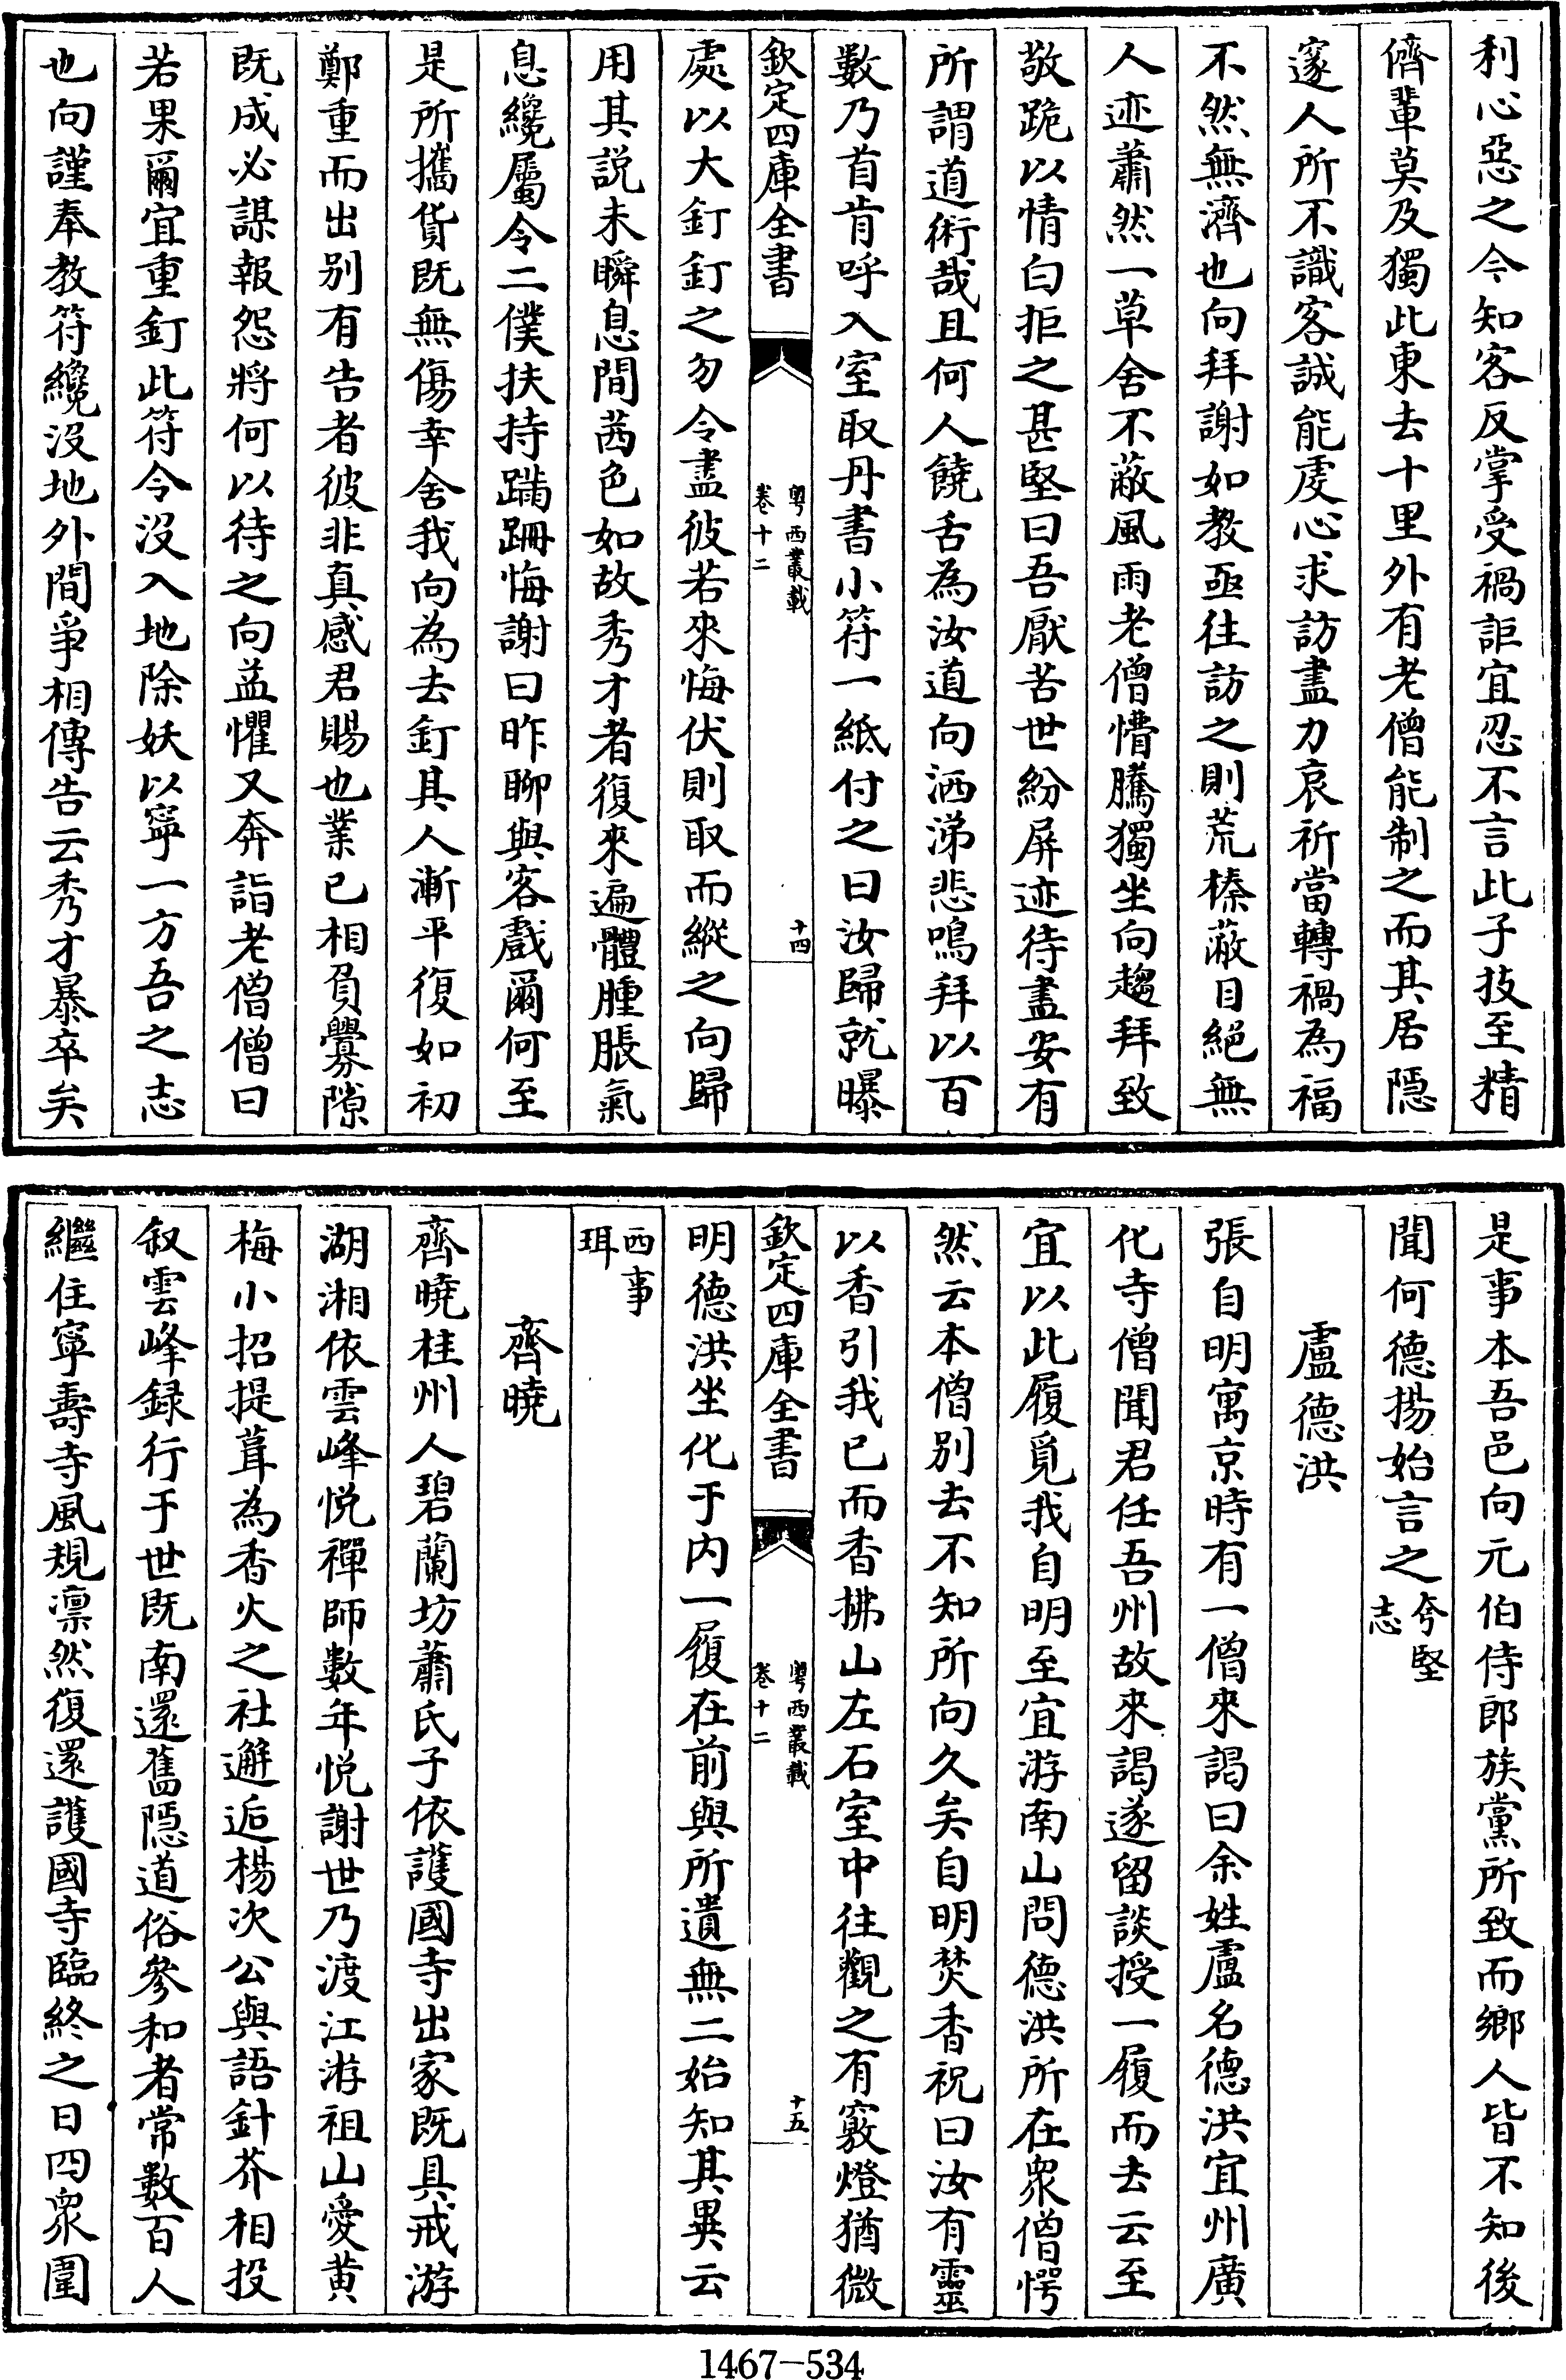 利心惡之今知客反掌受禍詎宜忍不言此子技至精
儕輩莫及獨此東去十里外有老僧能制之而其居隱
邃人所不識客誠能虔心求訪盡力哀祈當轉禍為福
不然無濟也向拜謝如教亟往訪之則荒榛蔽目絕無
人迹蕭然一草舍不蔽風雨老僧懵騰獨坐向趨拜致
敬跪以情白拒之甚堅曰吾厭苦世紛屏迹待盡安有
所謂道術哉且何人饒舌為汝道向洒涕悲鳴拜以百
數乃首肯呼入室取丹書小符一紙付之曰汝歸就曝
欽定四庫全書
粤西叢載
卷十二
十四
處以大釘釘之勿令盡彼若來悔伏則取而縱之向歸
用其説未瞬息間茜色如故秀才者復來遍體腫脹氣
息纔屬令二僕扶持蹣跚悔謝曰昨聊與客戲爾何至
是所攜貨既無傷幸舍我向為去釘其人漸平復如初
鄭重而出别有告者彼非真感君賜也業已相負釁隙
既成必謀報怨將何以待之向益懼又奔詣老僧僧曰
若果爾宜重釘此符令沒入地除妖以寧一方吾之志
也向謹奉教符纔沒地外間爭相傳告云秀才暴卒矣
是事本吾邑向元伯侍郎族黨所致而鄉人皆不知後
聞何德揚始言之夸堅志
盧德洪
張自明寓京時有一僧來謁曰余姓盧名德洪宜州廣
化寺僧聞君任吾州故來謁遂留談授一履而去云至
宜以此履覓我自明至宜游南山問德洪所在衆僧愕
然云本僧别去不知所向久矣自明焚香祝曰汝有靈
以香引我已而香拂山左石室中往觀之有竅燈猶微
欽定四庫全書
粤西叢載
卷十二
十五
明德洪坐化于内一履在前與所遺無二始知其異云
西事珥
齊曉
齊曉桂州人碧蘭坊蕭氏子依護國寺出家既具戒游
湖湘依雲峰悦禪師數年悦謝世乃渡江游祖山愛黄
梅小招提葺為香火之社邂逅楊次公與語針芥相投
叙雲峰録行于世既南還舊隱道俗參和者常數百人
繼住寧壽寺風規凛然復還護國寺臨終之日四衆圍
1467-534